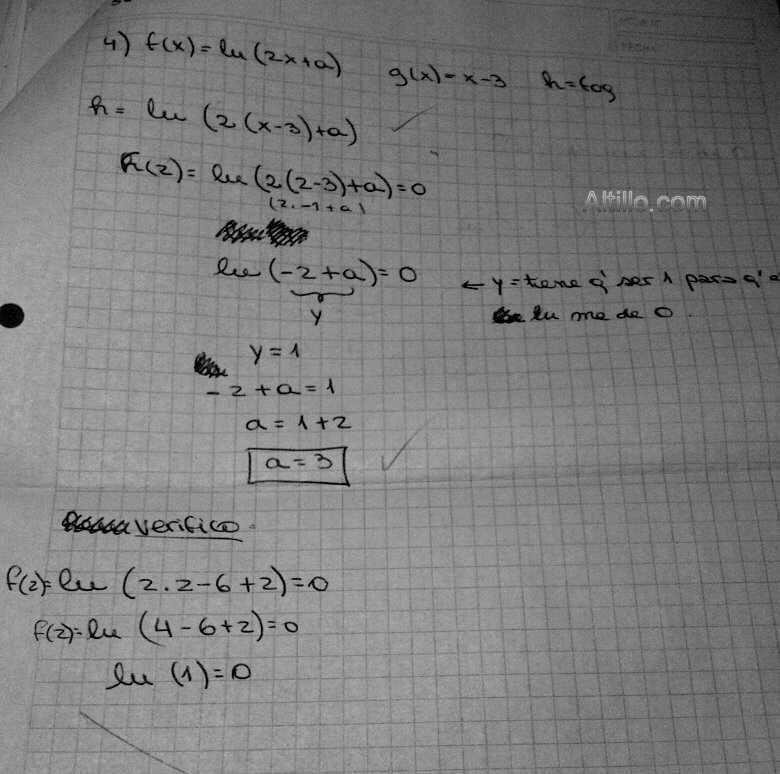 4) f(x) = ln (2x+a) g(x) = x-3 h = fog
h = ln (2(x-3)+a)
h(2) = ln (2(2-3)+a) = 0
(2.-1+a)
Altillo.com
ln (-2+a) = 0 ← y = tiene q' ser 1 para q'
y ln me de 0.
y = 1
-2+a = 1
a = 1+2
a = 3
verifico
f(2) = ln (2.2-6+2) = 0
f(2) = ln (4-6+2) = 0
ln (1) = 0